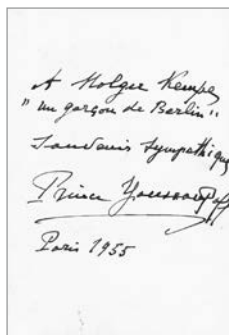 A Holger Kempe,
"un garçon de Berlin"
Souvenir sympathique
Prince Youssoupoff
Paris 1955